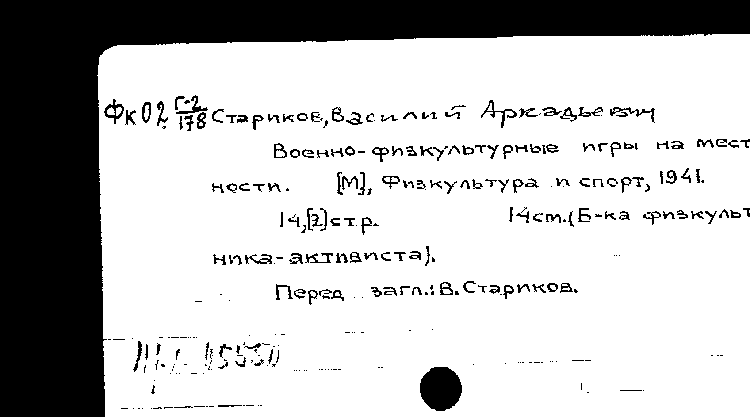 Фк02 Г-2/178 Стариков, Василий Аркадьевич
Военно-физкультурные игры на мест
ности. [М], Физкультура и спорт, 1941.
14,[2]стр. 14см.(Б-ка физкульт
ника-активиста).
Перед загл.: В. Стариков.